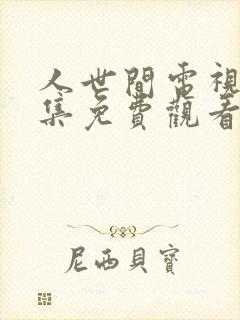 人世間電視
集免費觀看
尼西貝寶